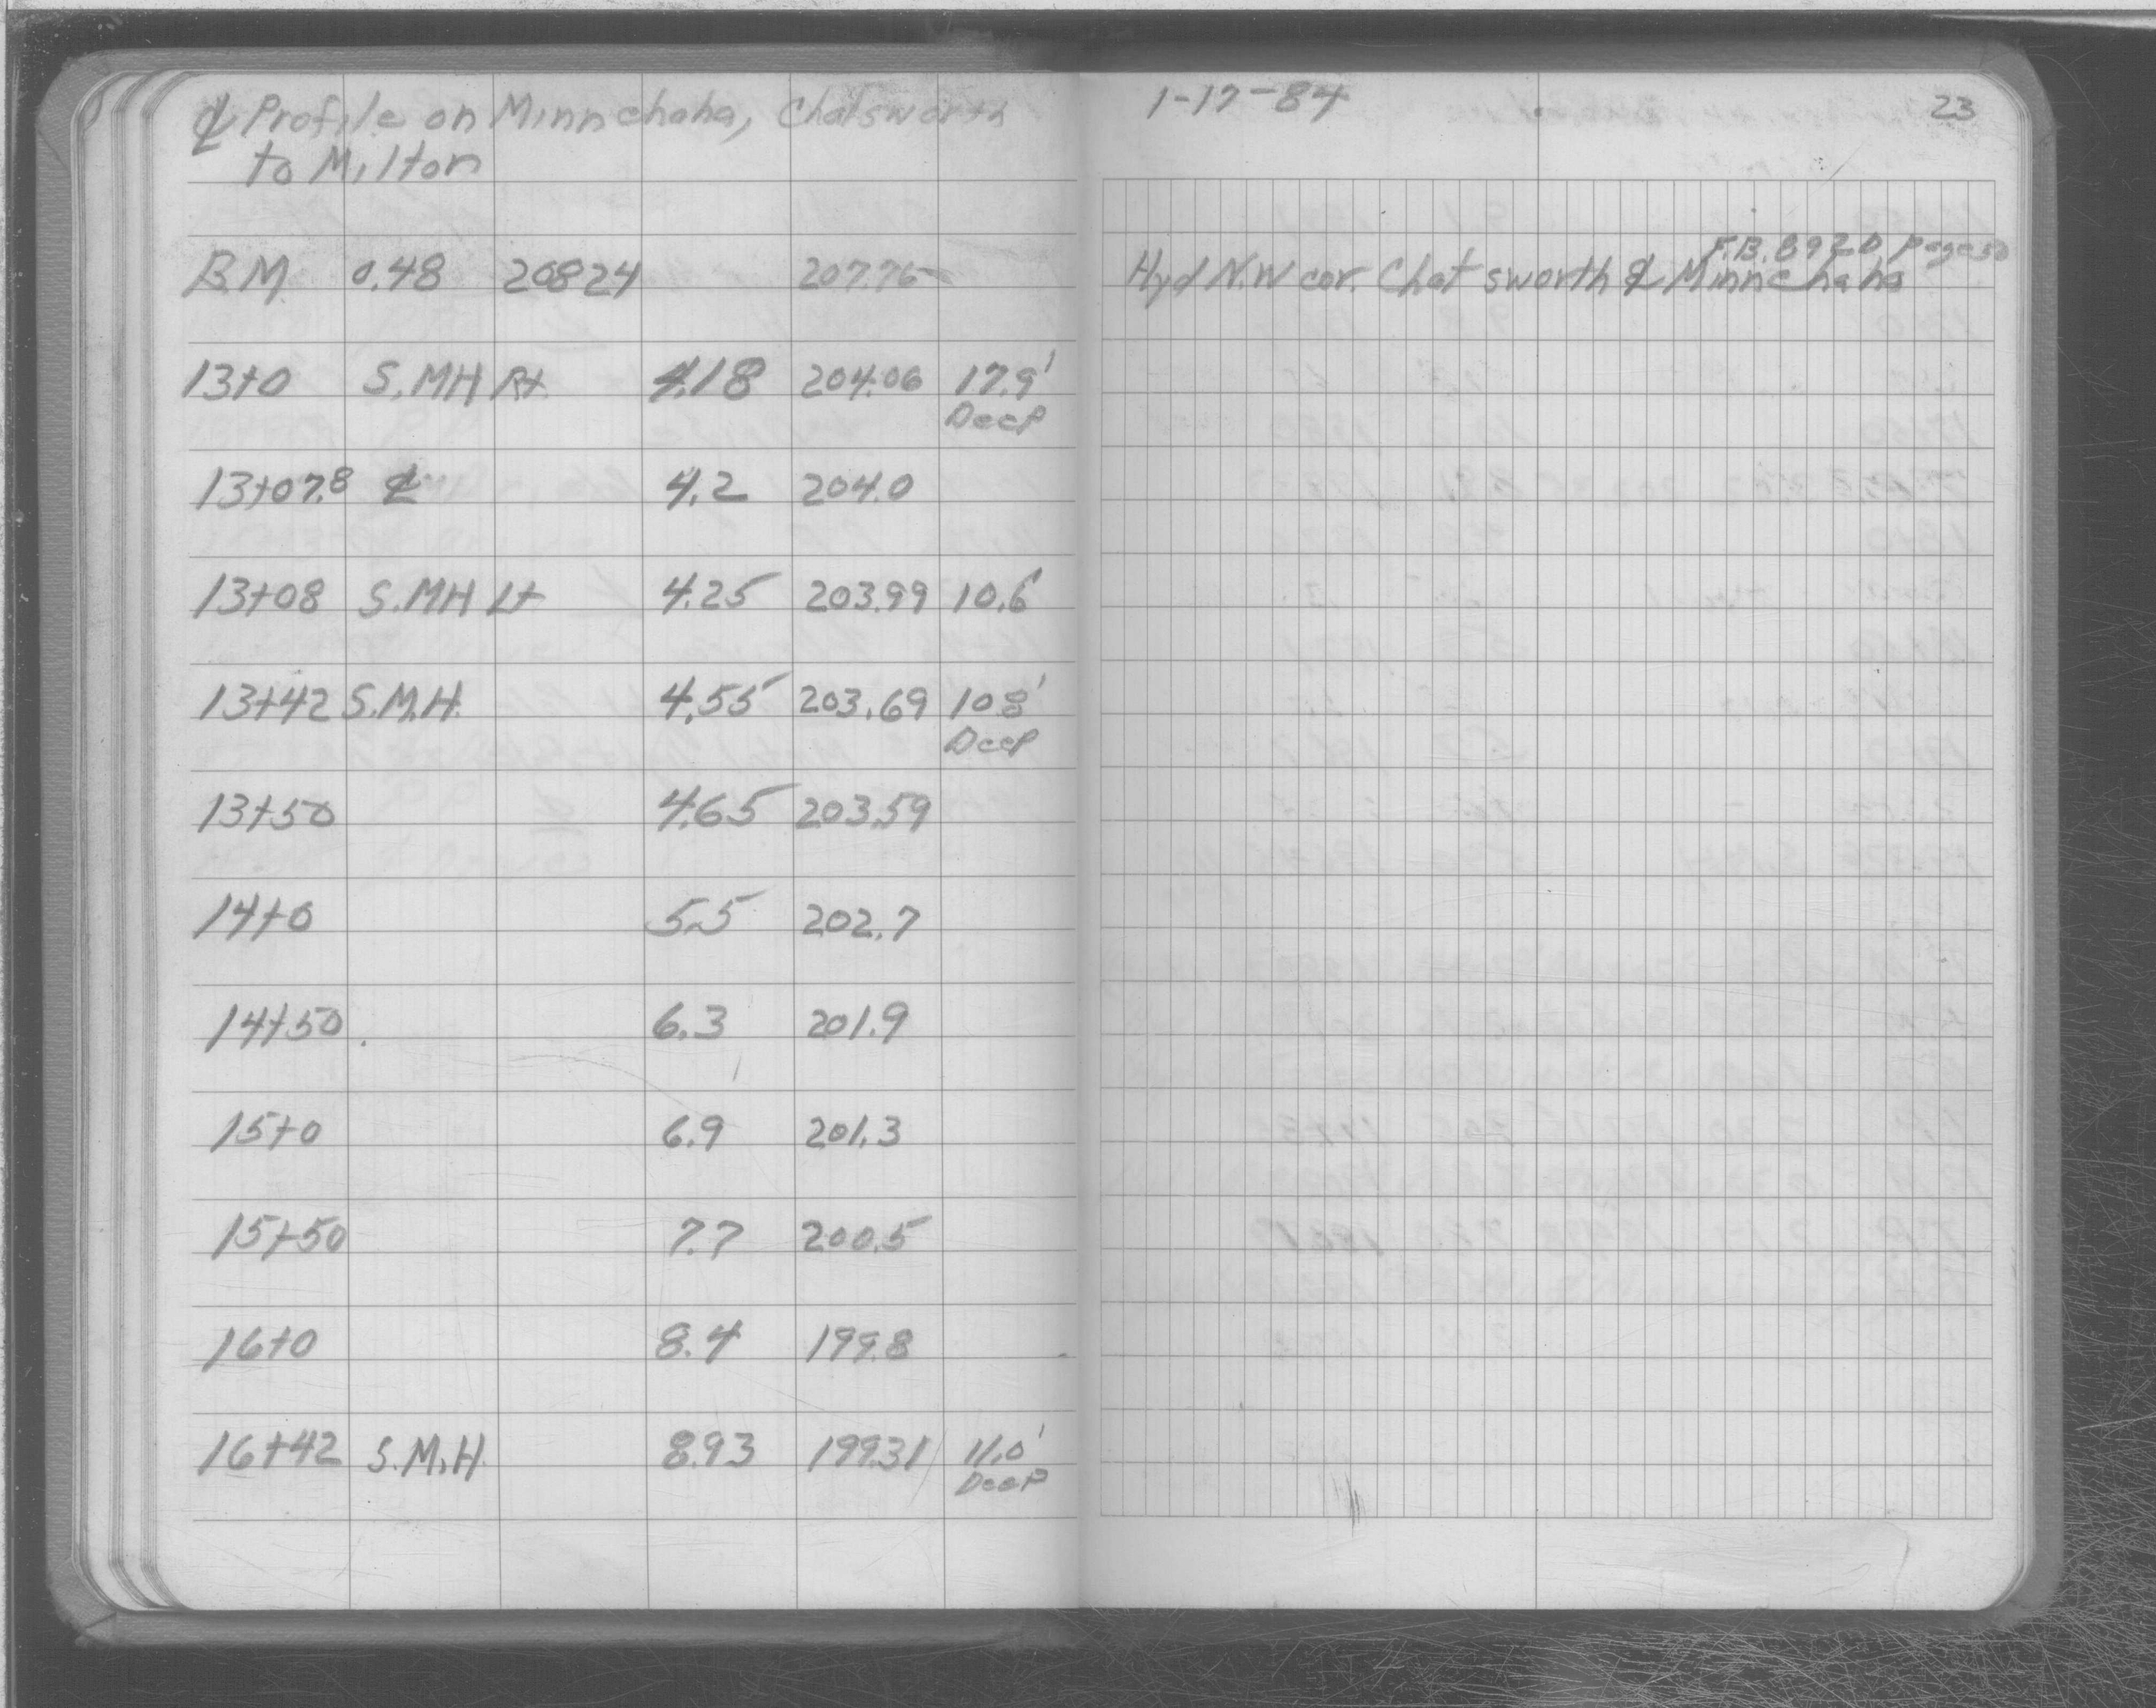 ℄ Profile on Minnehaha, Chatsworth
to Milton
B.M. 0.48 208.24 207.76
13+0 S.MH Rt 4.18 204.06 17.9'
Deep
13+07.8 ℄ 4.2 204.0
13+08 S.MH Lt 4.25 203.99 10.6'
13+42 S.M.H. 4.55 203.69 10.8'
Deep
13+50 4.65 203.59
14+0 5.5 202.7
14+50 6.3 201.9
15+0 6.9 201.3
15+50 7.7 200.5
16+0 8.4 199.8
16+42 S.M.H. 8.93 199.31 11.0'
Deep
1-17-84 23
F.B. 8920 Page
Hyd N.W cor. Chatsworth & Minnehaha